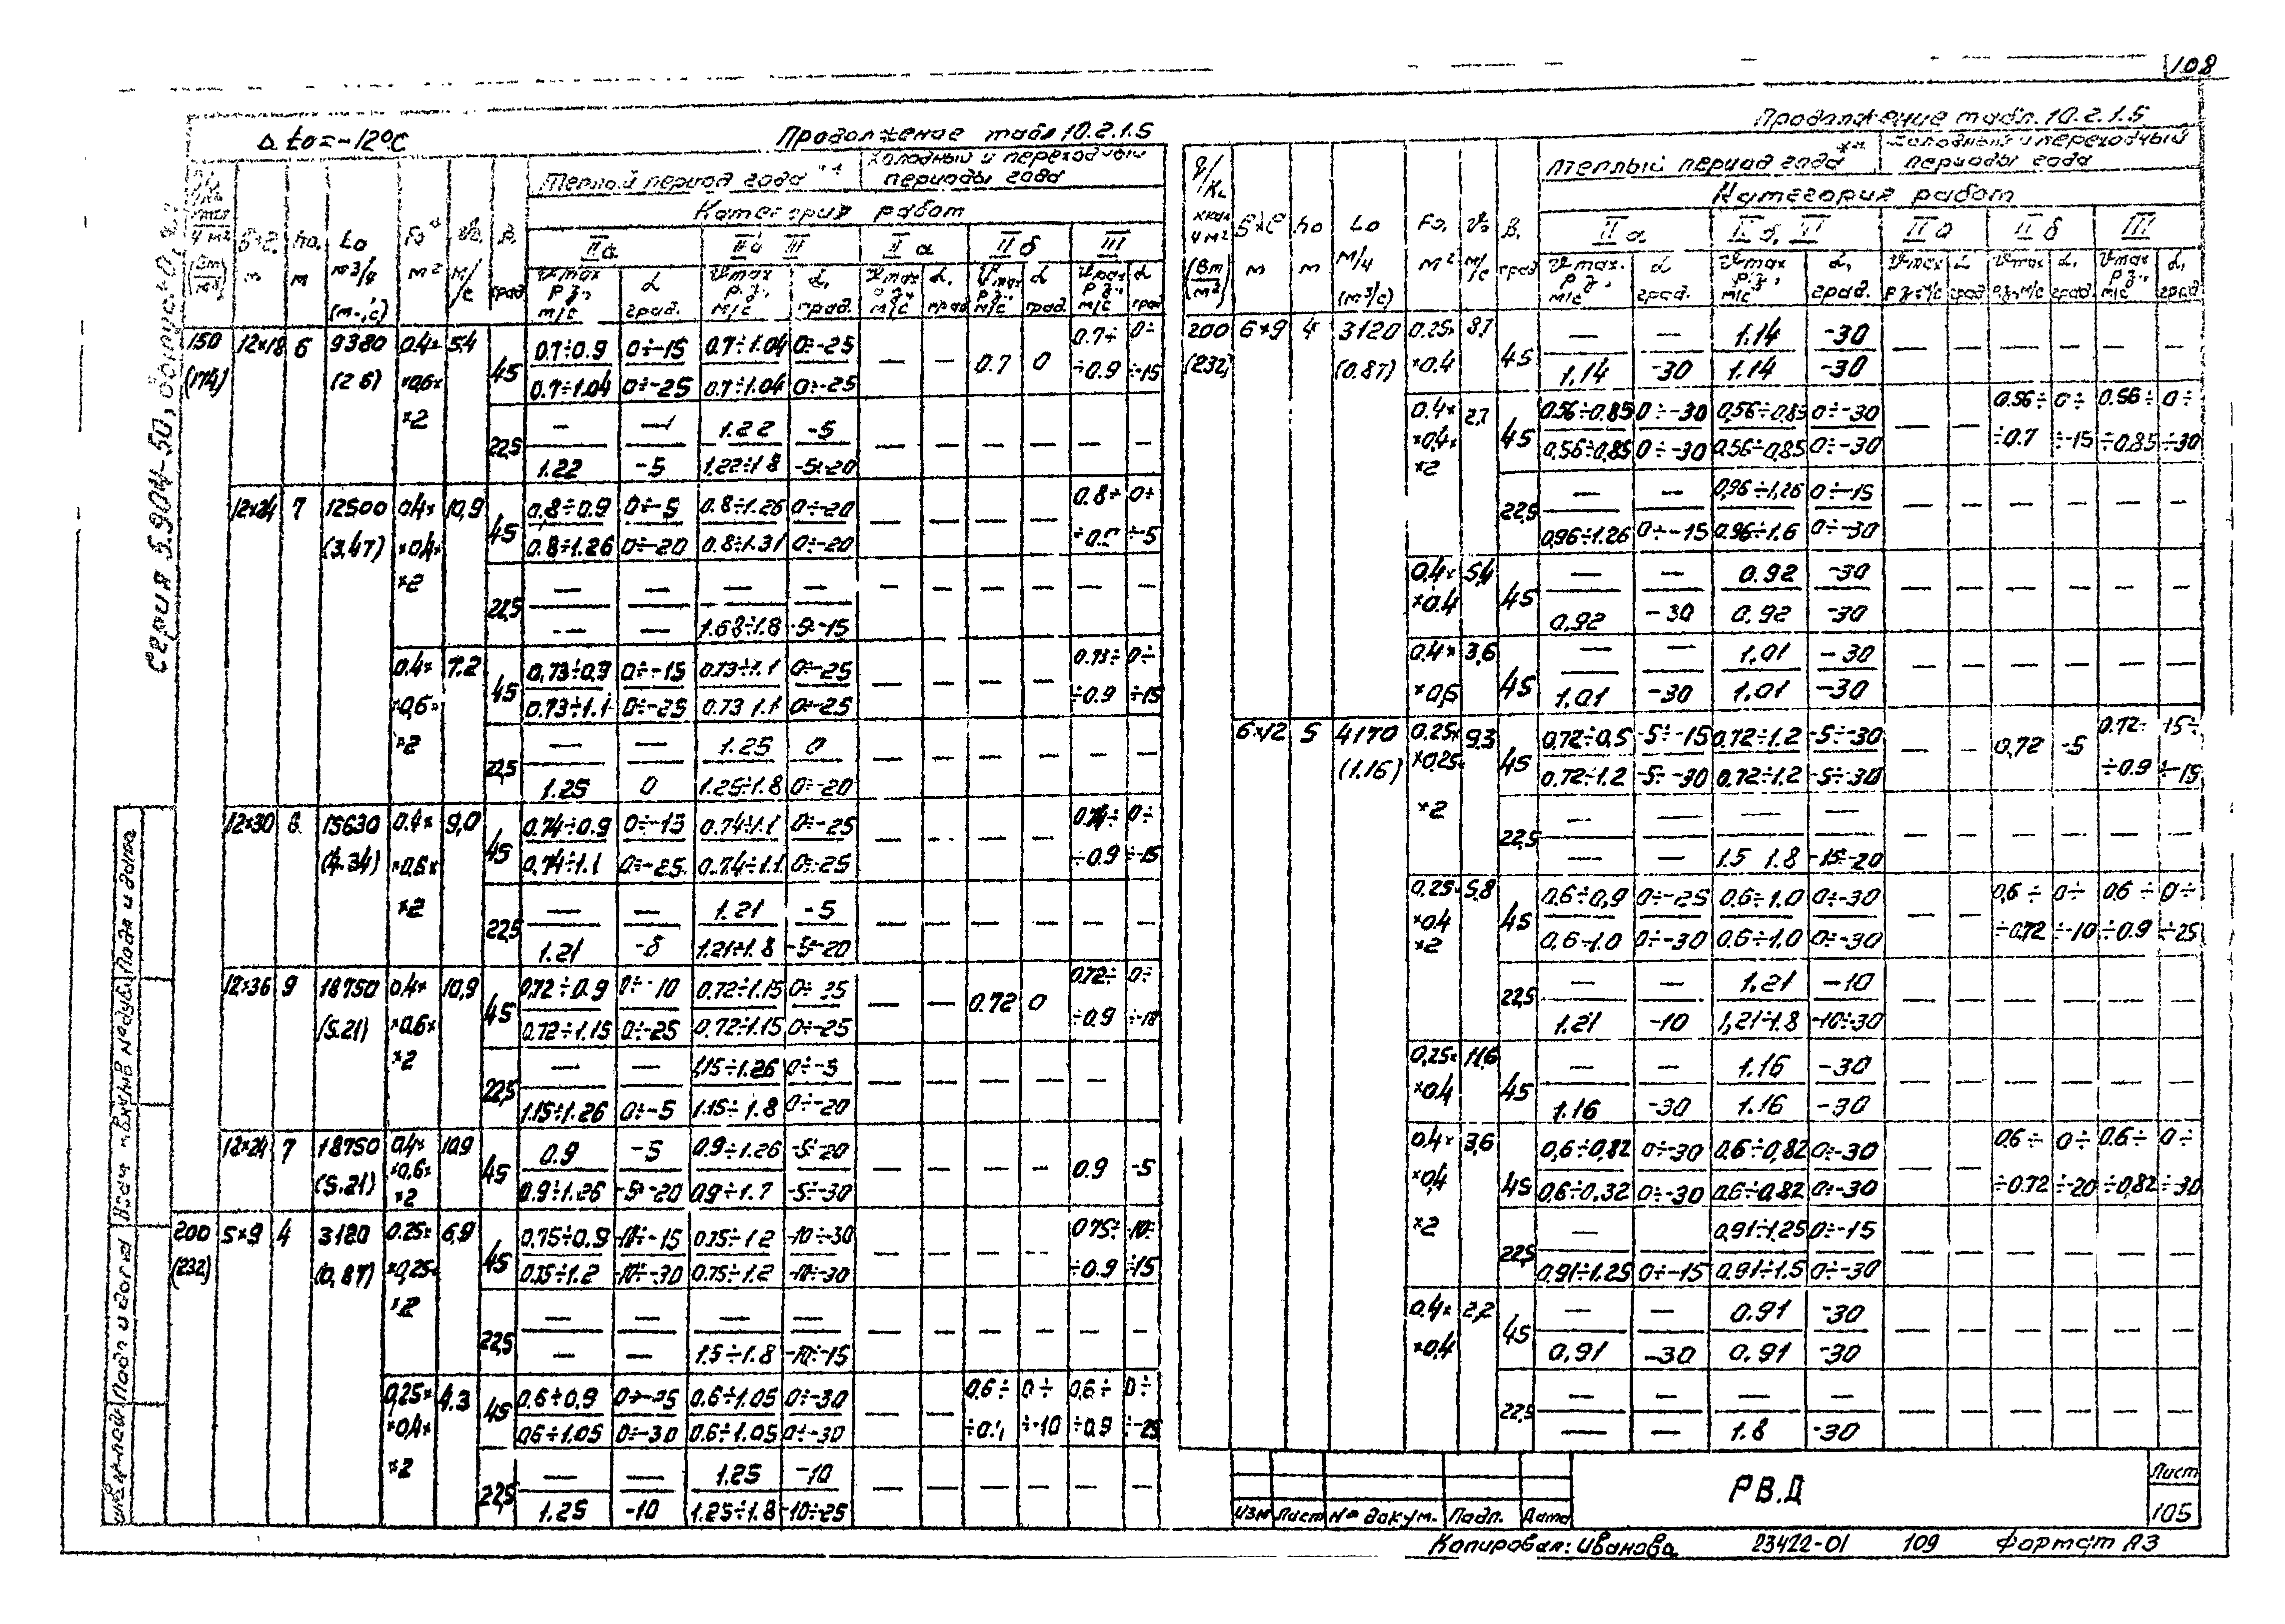 108
Δ to = -12°С
Продолжение табл 10.2.1.5
Теплый период года
Холодный и переходный периоды года
Категория работ
IIа III IIа IIб III
150 12×18 6 9380 0.4× 5.4 45 0.7÷0.9 0÷-15 0.7÷1.04 0÷-25 — — 0.7 0 0.7÷ 0÷
(174) (2.6) ×0,6× 0.7÷1.04 0÷-25 0.7÷1.04 0÷-25 ÷0.9 ÷-15
×2 22,5 — — 1.22 -5 — — — — — —
1.22 -5 1.22÷1.8 -5÷-20
12×24 7 12500 0.4× 10,9 45 0.8÷0.9 0÷-5 0.8÷1.26 0÷-20 — — — — 0.8÷ 0÷
(3.47) ×0,4× 0.8÷1.26 0÷-20 0.8÷1.31 0÷-20 ÷-5
×2 22,5 — — — — — — — — — —
— — 1.68÷1.8 -9÷-15
0.4× 7.2 45 0,73÷0,9 0÷-15 0.73÷1.1 0÷-25 — — — — 0.73÷ 0÷
×0,6× 0.73÷1.1 0÷-25 0.73 1.1 0÷-25 ÷0.9 ÷-15
×2 22,5 — — 1.25 0 — — — — — —
1.25 0 1.25÷1.8 0÷-20
12×30 8 15630 0.4× 9,0 45 0.74÷0.9 0÷-15 0.74÷1.1 0÷-25 — — — — 0.74÷ 0÷
(4.34) ×0,6× 0.74÷1.1 0÷-25 0.74÷1.1 0÷-25 ÷0.9 ÷-15
×2 22,5 — — 1.21 -5 — — — — — —
1.21 -5 1.21÷1.8 -5÷-20
12×36 9 18750 0.4× 10,9 45 0.72÷0.9 0÷-10 0.72÷1.15 0÷-25 — — 0.72 0 0.72÷ 0÷
(5.21) ×0.6× 0.72÷1.15 0÷-25 0.72÷1.15 0÷-25 ÷0.9
×2 22,5 — — 1,15÷1.26 0÷-5 — — — — —
1.15÷1.26 0÷-5 1.15÷1.8 0÷-20
12×24 7 18750 0,4× 10,9 45 0.9 -5 0.9÷1.26 -5÷-20 — — — — 0.9 -5
(5.21) ×0,6× 0.9÷1.26 -5÷-20 0.9÷1.7 -5÷-30
×2
200 5×9 4 3120 0.25× 6,9 45 0.75÷0.9 -10÷-15 0.75÷1.2 -10÷-30 — — — — 0.75÷ -10÷
(232) (0,87) ×0,25× 0.75÷1.2 -10÷-30 0.75÷1.2 -10÷-30 ÷0.9 ÷15
×2 22,5 — — — — — — — — — —
— — 1.5÷1.8 -10÷-15
0,25× 4.3 45 0.6÷0.9 0÷-25 0.6÷1.05 0÷-30 — — 0.6÷ 0÷ 0,6÷ 0÷
×0,4× 0.6÷1.05 0÷-30 0.6÷1.05 0÷-30 ÷-10 ÷0.9 ÷-25
×2 22,5 — — 1.25 -10 — — — — — —
1.25 -10 1.25÷1.8 -10÷-25
Продолжение табл. 10.2.1.5
Теплый период года
Холодный и переходный периоды года
Категория работ
IIа IIб, III IIа IIб III
200 6×9 4 3120 0.25× 8,7 45 — — 1.14 -30 — — — — — —
(232) (0.87) ×0.4 1.14 -30 1.14 -30
0.4× 2,7 45 0.56÷0.85 0÷-30 0,56÷0,85 0÷-30 — — 0.56÷ 0÷ 0.56÷ 0÷
×0,4× 0,56÷0,85 0÷-30 0,56÷0,85 0÷-30 ÷0.7 ÷-15 ÷0.85 ÷30
×2 22,5 — — 0,96÷1,26 0÷-15 — — — — — —
0,96÷1.26 0÷-15 0.96÷1.6 0÷-30
0,4× 5,4 45 — — 0.92 -30 — — — — — —
×0.4 0,92 -30 0,92 -30
0.4× 3,6 45 — — 1,01 -30 — — — — — —
×0,6 1,01 -30 1,01 -30
6×12 5 4170 0.25× 9.3 45 0.72÷0,5 -5÷-15 0,72÷1.2 -5÷-30 — — 0,72 -5 0.72÷ 15÷
(1.16) ×0,25× 0.72÷1.2 -5÷-30 0,72÷1.2 -5÷-30 ÷0.9 ÷-15
×2 22,5 — — — — — — — — — —
— — 1.5 1.8 -15÷-20
0,25× 5,8 45 0.6÷0,9 0÷-25 0.6÷1.0 0÷-30 — — 0,6÷ 0÷ 0.6÷ 0÷
×0.4 0,6÷1.0 0÷-30 0.6÷1.0 0÷-30 ÷0.72 ÷-10 ÷0.9 ÷25
×2 22,5 — — 1.21 -10 — — — — — —
1.21 -10 1,21÷1.8 -10÷-30
0,25× 11,6 45 — — 1.16 -30 — — — — — —
×0.4 1.16 -30 1.16 -30
0.4× 3,6 45 0,6÷0,82 0÷-30 0,6÷0,82 0÷-30 — — 0.6÷ 0÷ 0.6÷ 0÷
×0,4 0,6÷0,32 0÷-30 0.6÷0,82 0÷-30 ÷0.72 ÷-20 ÷0,82 ÷-30
×2 22,5 — 0,91÷1,25 0÷-15 — — — — — —
0,91÷1.25 0÷-15 0.91÷1.5 0÷-30
0.4× 2,2 45 — — 0.91 -30 — — — — — —
×0,4 0,91 -30 0.91 -30
22,5 — — — — — — — — — —
— — 1.8 -30
РВ.Д
Лист
105
Изм Лист № докум. Подп. Дата
Копировал: Иванова 23422-01 109 Формат А3
Серия 5.904-50,